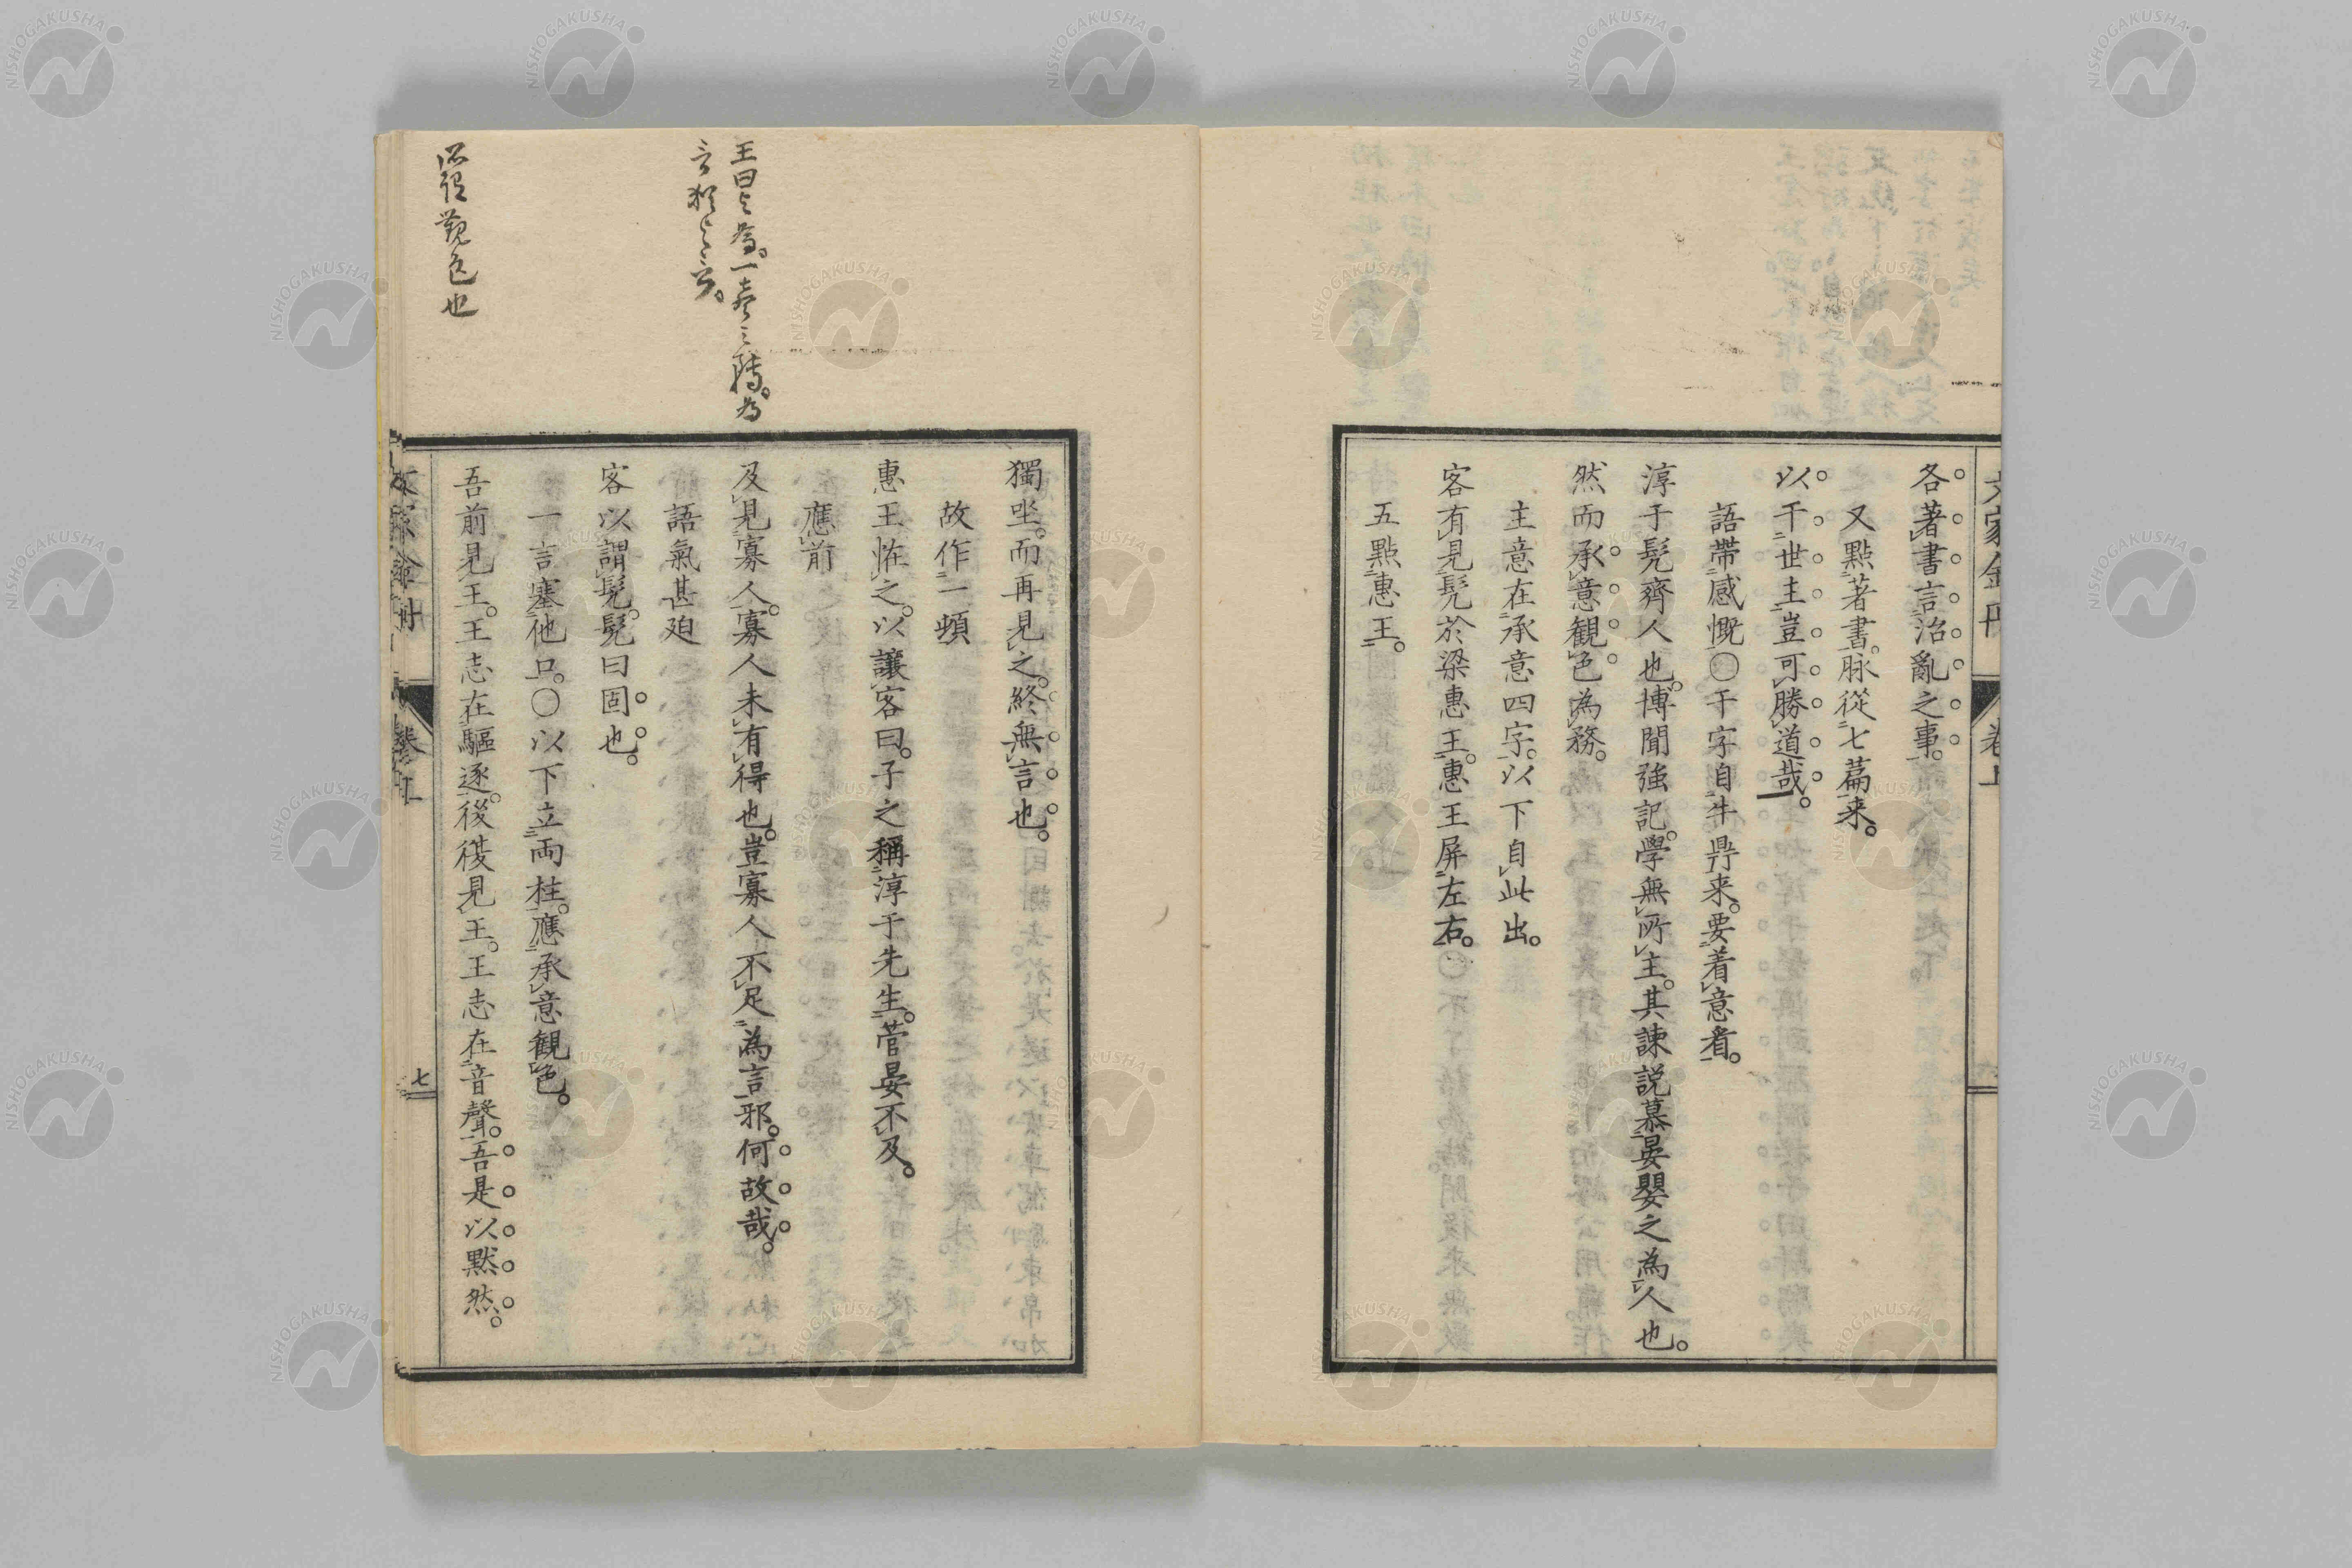 各著書言治亂之事。
又點著書。脉從七篇来。
以干世主豈可勝道哉。
語帶感慨〇干字自牛鼎来。要着意看。
淳于髡齊人也。博聞強記。學無所主。其諫説慕晏嬰之為人也。
然而承意観色為務。
主意在承意四字。以下自此出。
客有見髡於梁惠王。惠王屏左右。
五點惠王。
獨坐。而再見之。終無言也。
故作一頓
惠王恠之。以讓客曰。子之稱淳于先生。菅晏不及。
應前
及見寡人。寡人未有得也。豈寡人不足為言邪。何故哉。
語氣甚廹
客以謂髡。髡曰固也。
一言塞他口。〇以下立両柱。應承意観色。
吾前見王。王志在驅逐。後復見王。王志在音聲。吾是以黙然。
七
王曰与為。一壺之轉。為
言猶与言。
觀色也
NISHOGAKUSHA